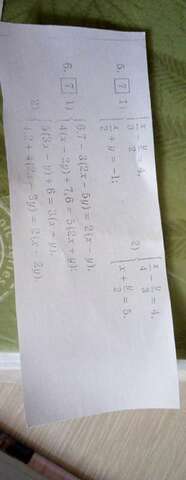 5. 7 1) { x/3 - y/2 = 4,
x/2 + y = -1;
2) { x/4 - y/3 = 4,
x + y/2 = 5.
6. 7 1) { 6,7 - 3(2x - 5y) = 2(x - y),
4(x - 2y) + 7,6 = 5(2x + y);
2) { 5(3x - y) + 6 = 3(x - y),
= 2(x - 2y).